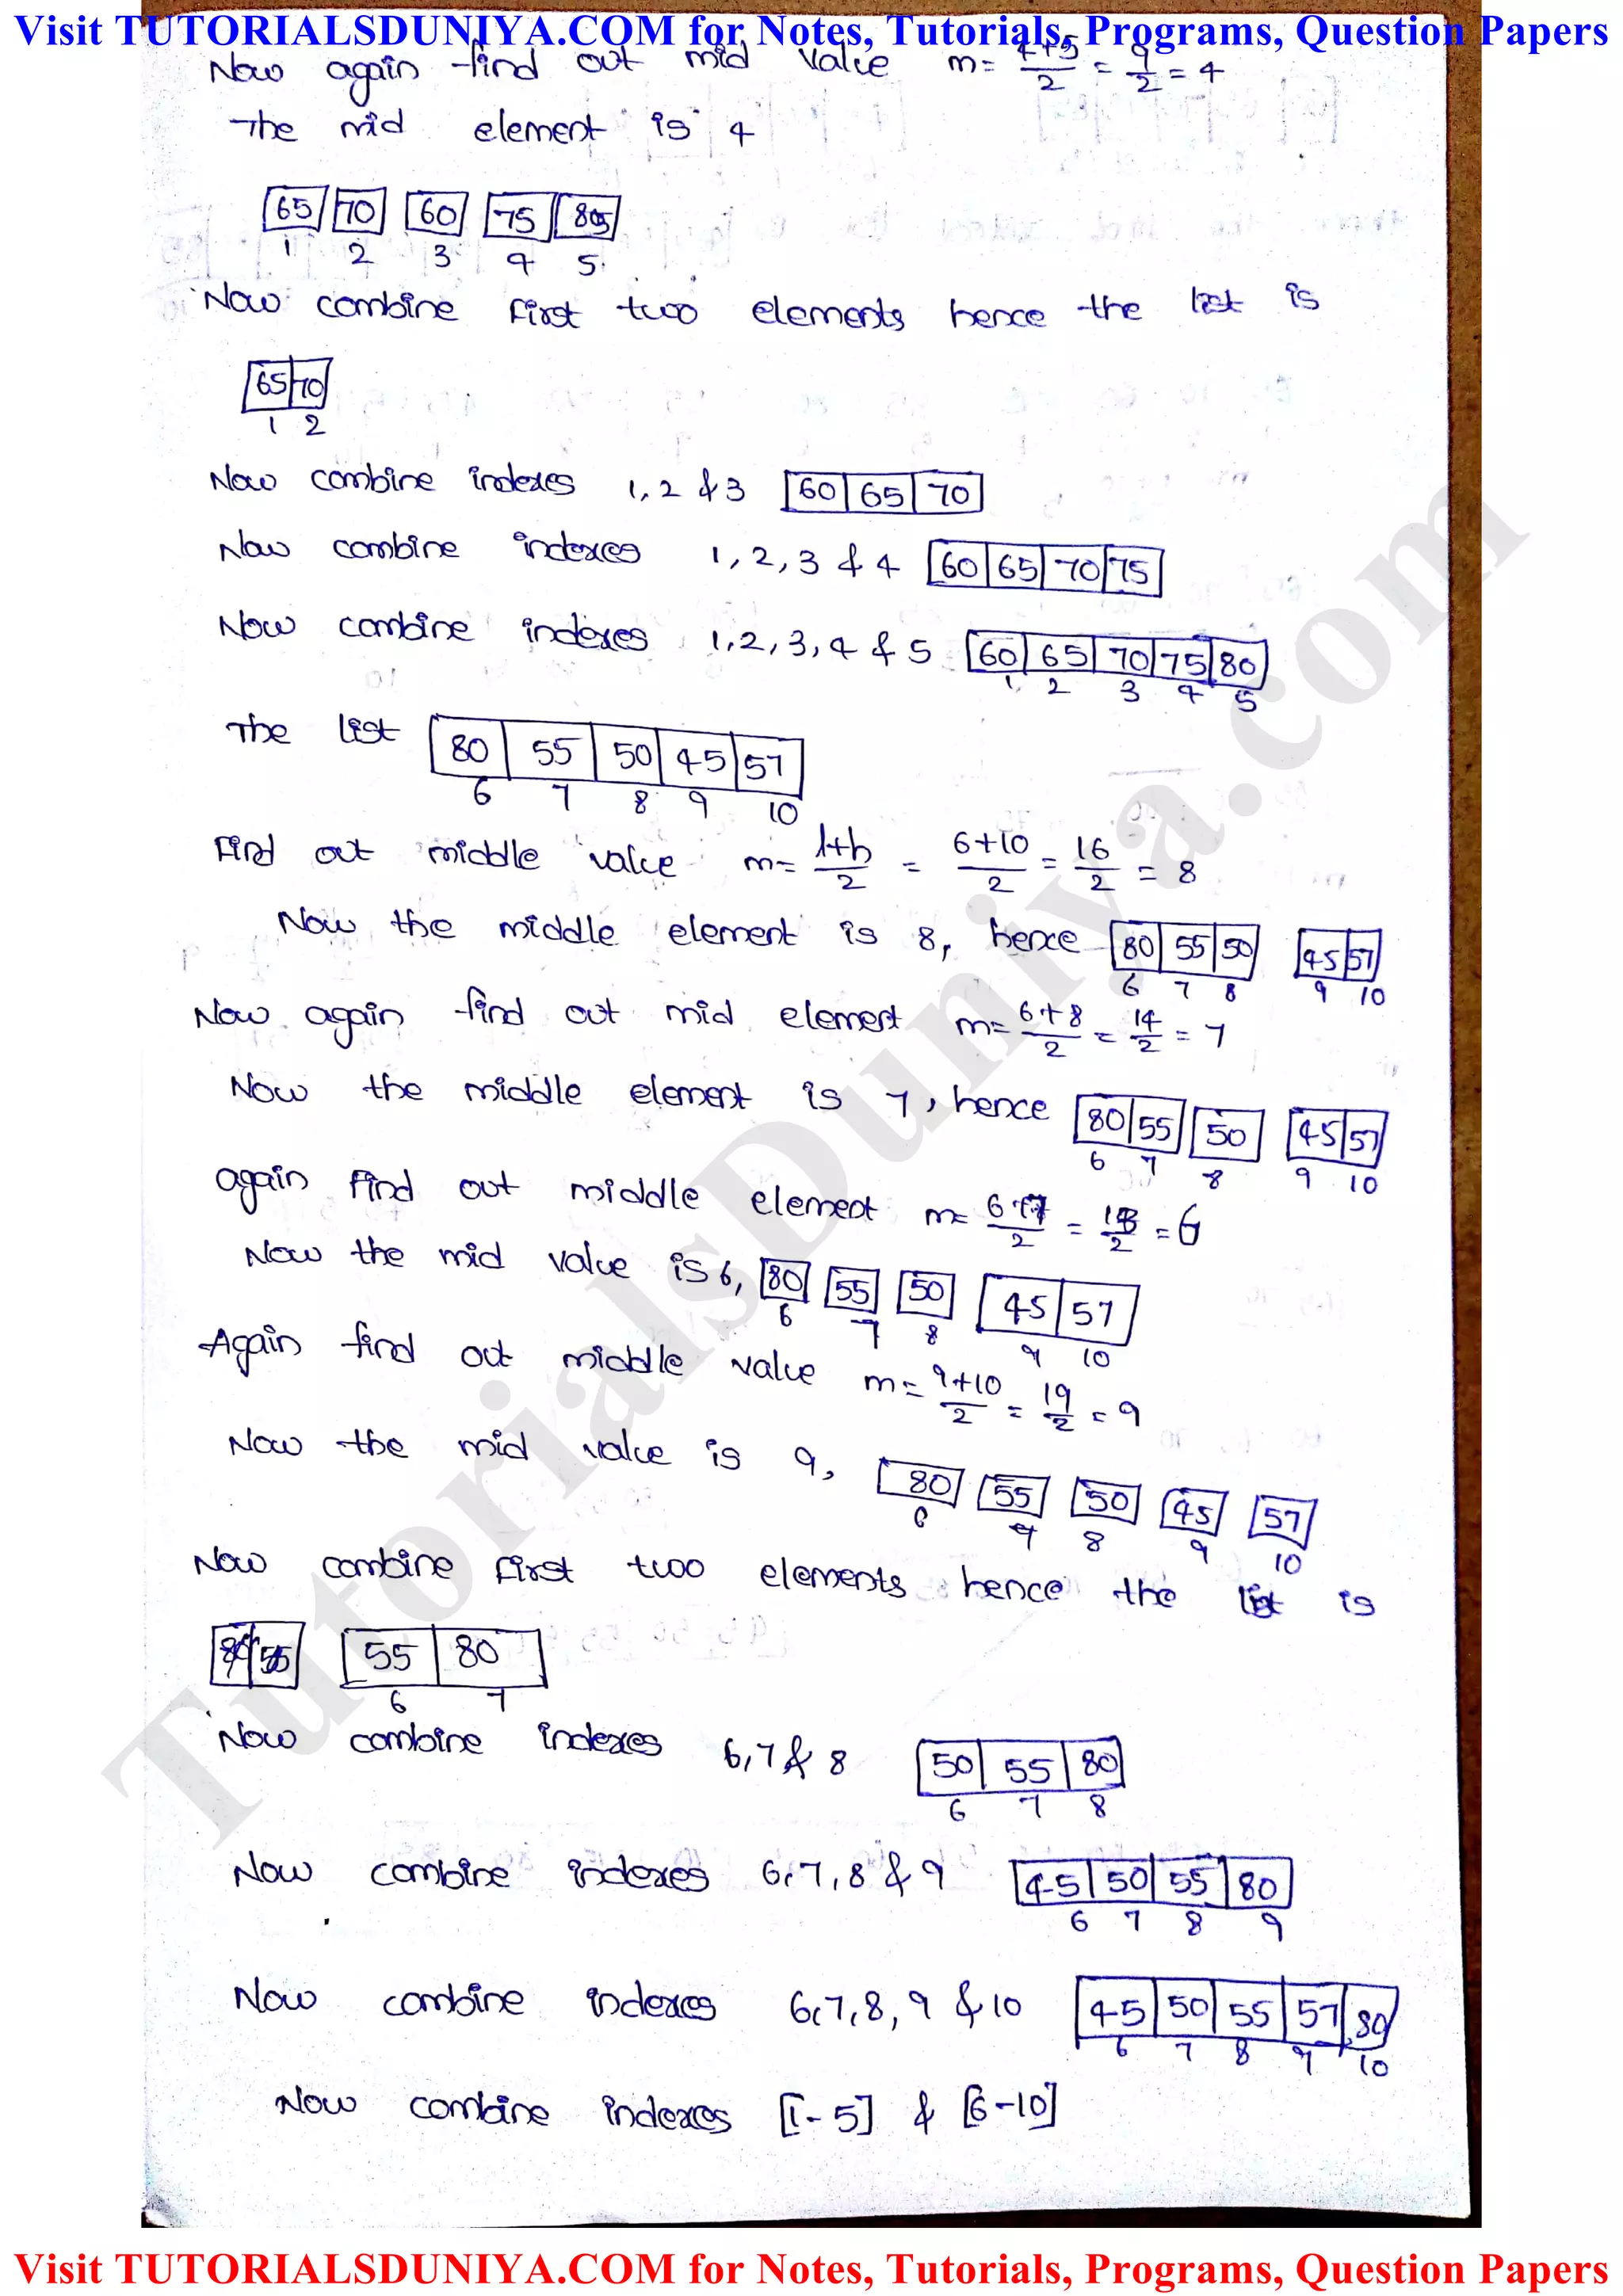 Visit TUTORIALSDUNIYA.COM for Notes, Tutorials, Programs, Question Papers
Now again find out mid value m = 4+5/2 = 9/2 = 4
The mid element is 4
65 70 60 75 85
1 2 3 4 5
Now combine first two elements hence the list is
65 70
1 2
Now combine indexes 1, 2 & 3 60 65 70
Now combine indexes 1, 2, 3 & 4 60 65 70 75
Now combine indexes 1, 2, 3, 4 & 5 60 65 70 75 80
1 2 3 4 5
The list 80 55 50 45 57
6 7 8 9 10
Find out middle value m = l+h/2 = 6+10/2 = 16/2 = 8
Now the middle element is 8, hence 80 55 50 45 57
6 7 8 9 10
Now again find out mid element m = 6+8/2 = 14/2 = 7
Now the middle element is 7, hence 80 55 50 45 57
6 7 8 9 10
again find out middle element m = 6+7/2 = 13/2 = 6
Now the mid value is 6, 80 55 50 45 57
6 7 8 9 10
Again find out middle value m = 9+10/2 = 19/2 = 9
Now the mid value is 9, 80 55 50 45 57
6 7 8 9 10
Now combine first two elements hence the list is
55 80
6 7
Now combine indexes 6, 7 & 8 50 55 80
6 7 8
Now combine indexes 6, 7, 8 & 9 45 50 55 80
6 7 8 9
Now combine indexes 6, 7, 8, 9 & 10 45 50 55 57 80
6 7 8 9 10
Now combine indexes [1-5] & [6-10]
TutorialsDuniya.com
Visit TUTORIALSDUNIYA.COM for Notes, Tutorials, Programs, Question Papers